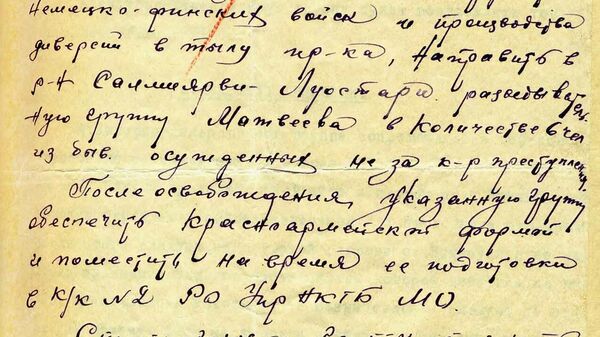 Немецко-финских войск и производства
диверсий в тылу пр-ка, направить в
р-н Салмиярви-Луостари разведыватель
ную группу Матвеева в количестве 6 чел
из быв. осужденных не за к-р преступлен.
После освобождения, указанную группу
обеспечить красноармейской формой
и поместить на время ее подготовки
в К/К №2 РО Упр НКГБ МО.